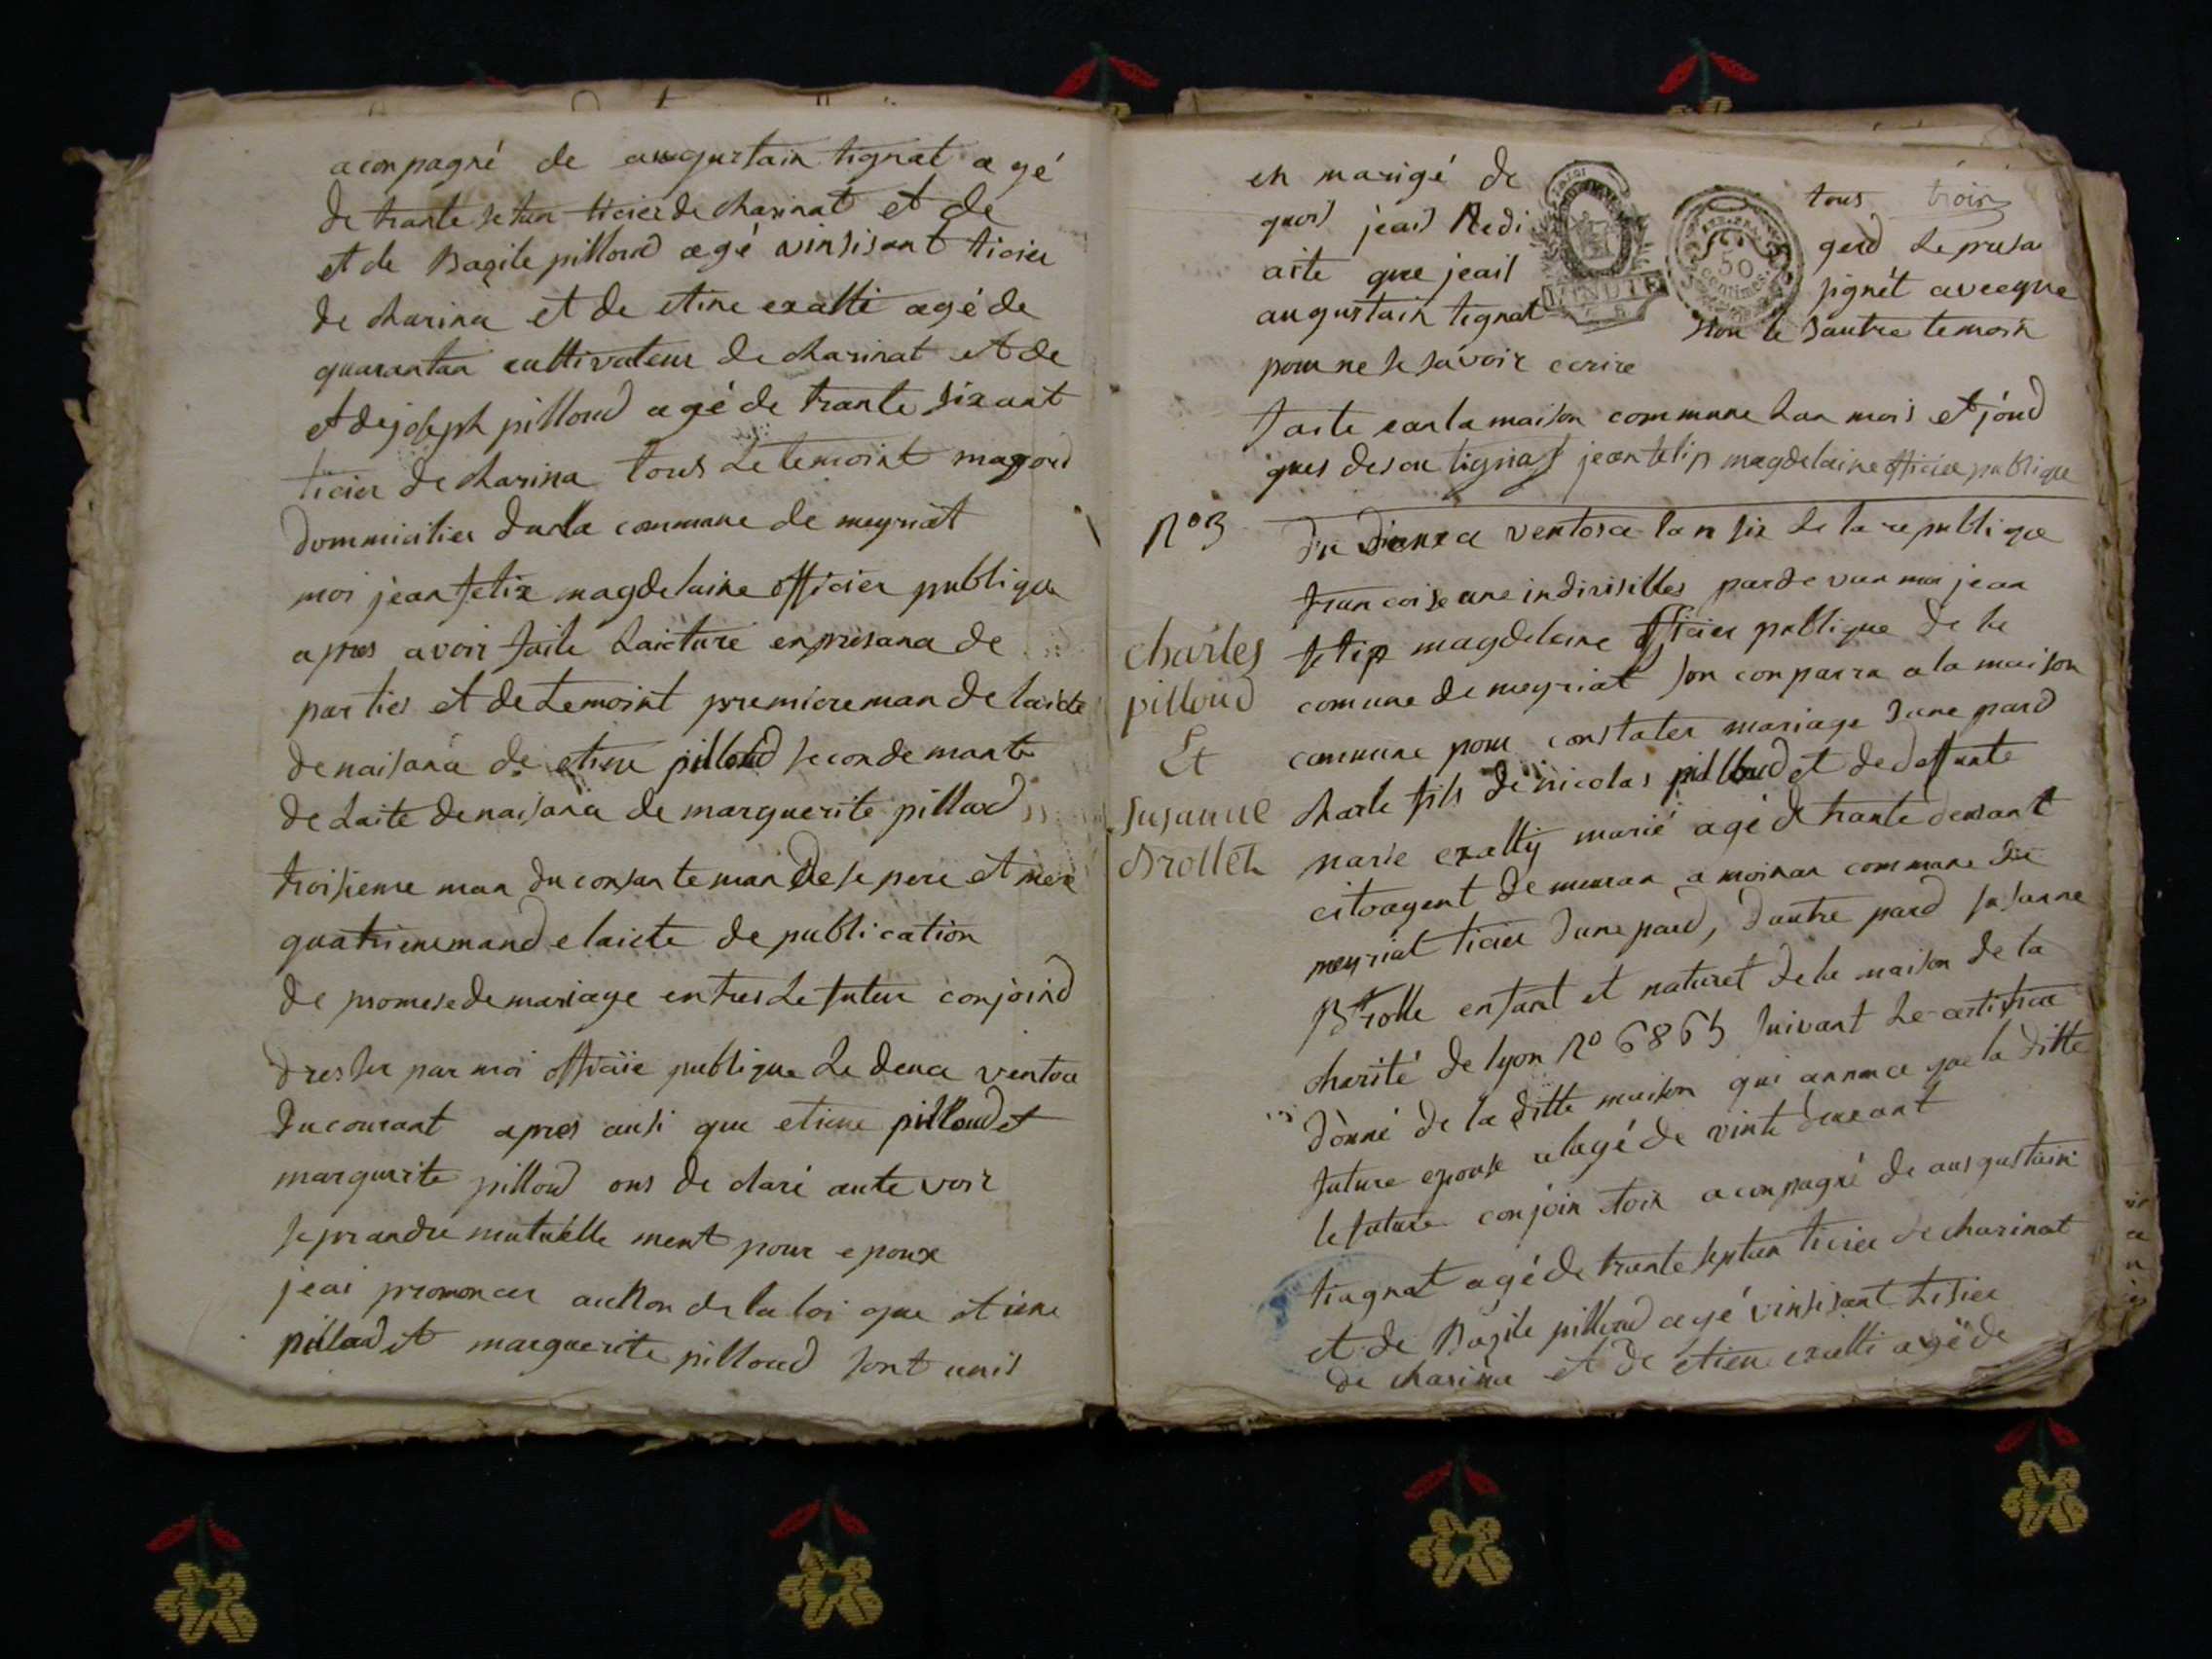 aconpagné de augustain tignat agé
de trante setan ticier de charinat et de
et de Bazile pilloud agé vinsisant ticier
de charina et de etine exalti agé de
quarantan cultivateur de charinat et de
et de joseph pilloud agé de trante sixant
ticier de charina tous le temoint
dommicilier dans la commune de meyriat
moi jean felix magdelaine officier publique
apres avoir faite laicture enpresana de
parties et de temoint premiereman de laicte
de naisana de etine pilloud secondemante
de laite de naisana de marguerite pilloud
troisieme man du consanteman de se pere et mere
quatriememand e laicte de publication
de promese de mariage entres le futeur conjoind
dresser par moi officiie publique le deuce ventoce
du courant apres ausi que etiene pilloud et
marguerite pilloud ons de claré aute voix
se prandre mutuélle ment pour epoux
jeai promoncer aux non de la loi que etiene
pilloud et marguerite pilloud sont unis
en marigé de tous troix
quoi jeais Redi gerd le presa
aite que jeail signét avecque
augustain tignat non le sautre temoin
pour ne le savoir ecrire
MINUTE
50 centimes
faite can la maison commune lan mois et joud
ques desou tignat jean felip magdelaine officier publique
No 3 du ventosa lan six de la republique
francoise une indivisilles pardevan moi jean
charles pilloud Et Susanne Drollet
felip magdelaine officier publique de la
comune de meyriat son conparra a la maison
commune pour constater mariage dune pard
charle fils de nicolas pilloud et de deffunte
marie exalty marié agé de trante deusant
citoayent demeuran a moinan commune de
meyriat ticier dune pard, dautre pard susanne
Btrolle enfant et naturet de la maison de la
charité de lyon No 6865 suivant le certificat
donné de la ditte maison qui annonce que la ditte
future epouse alagé de vinte deuxant
le future conjoin etoix aconpagné de augustain
tiagnat agé de trante septan ticier de charinat
et de Bazile pilloud agé vinsisant tisier
de charina et de etien exalti agé de